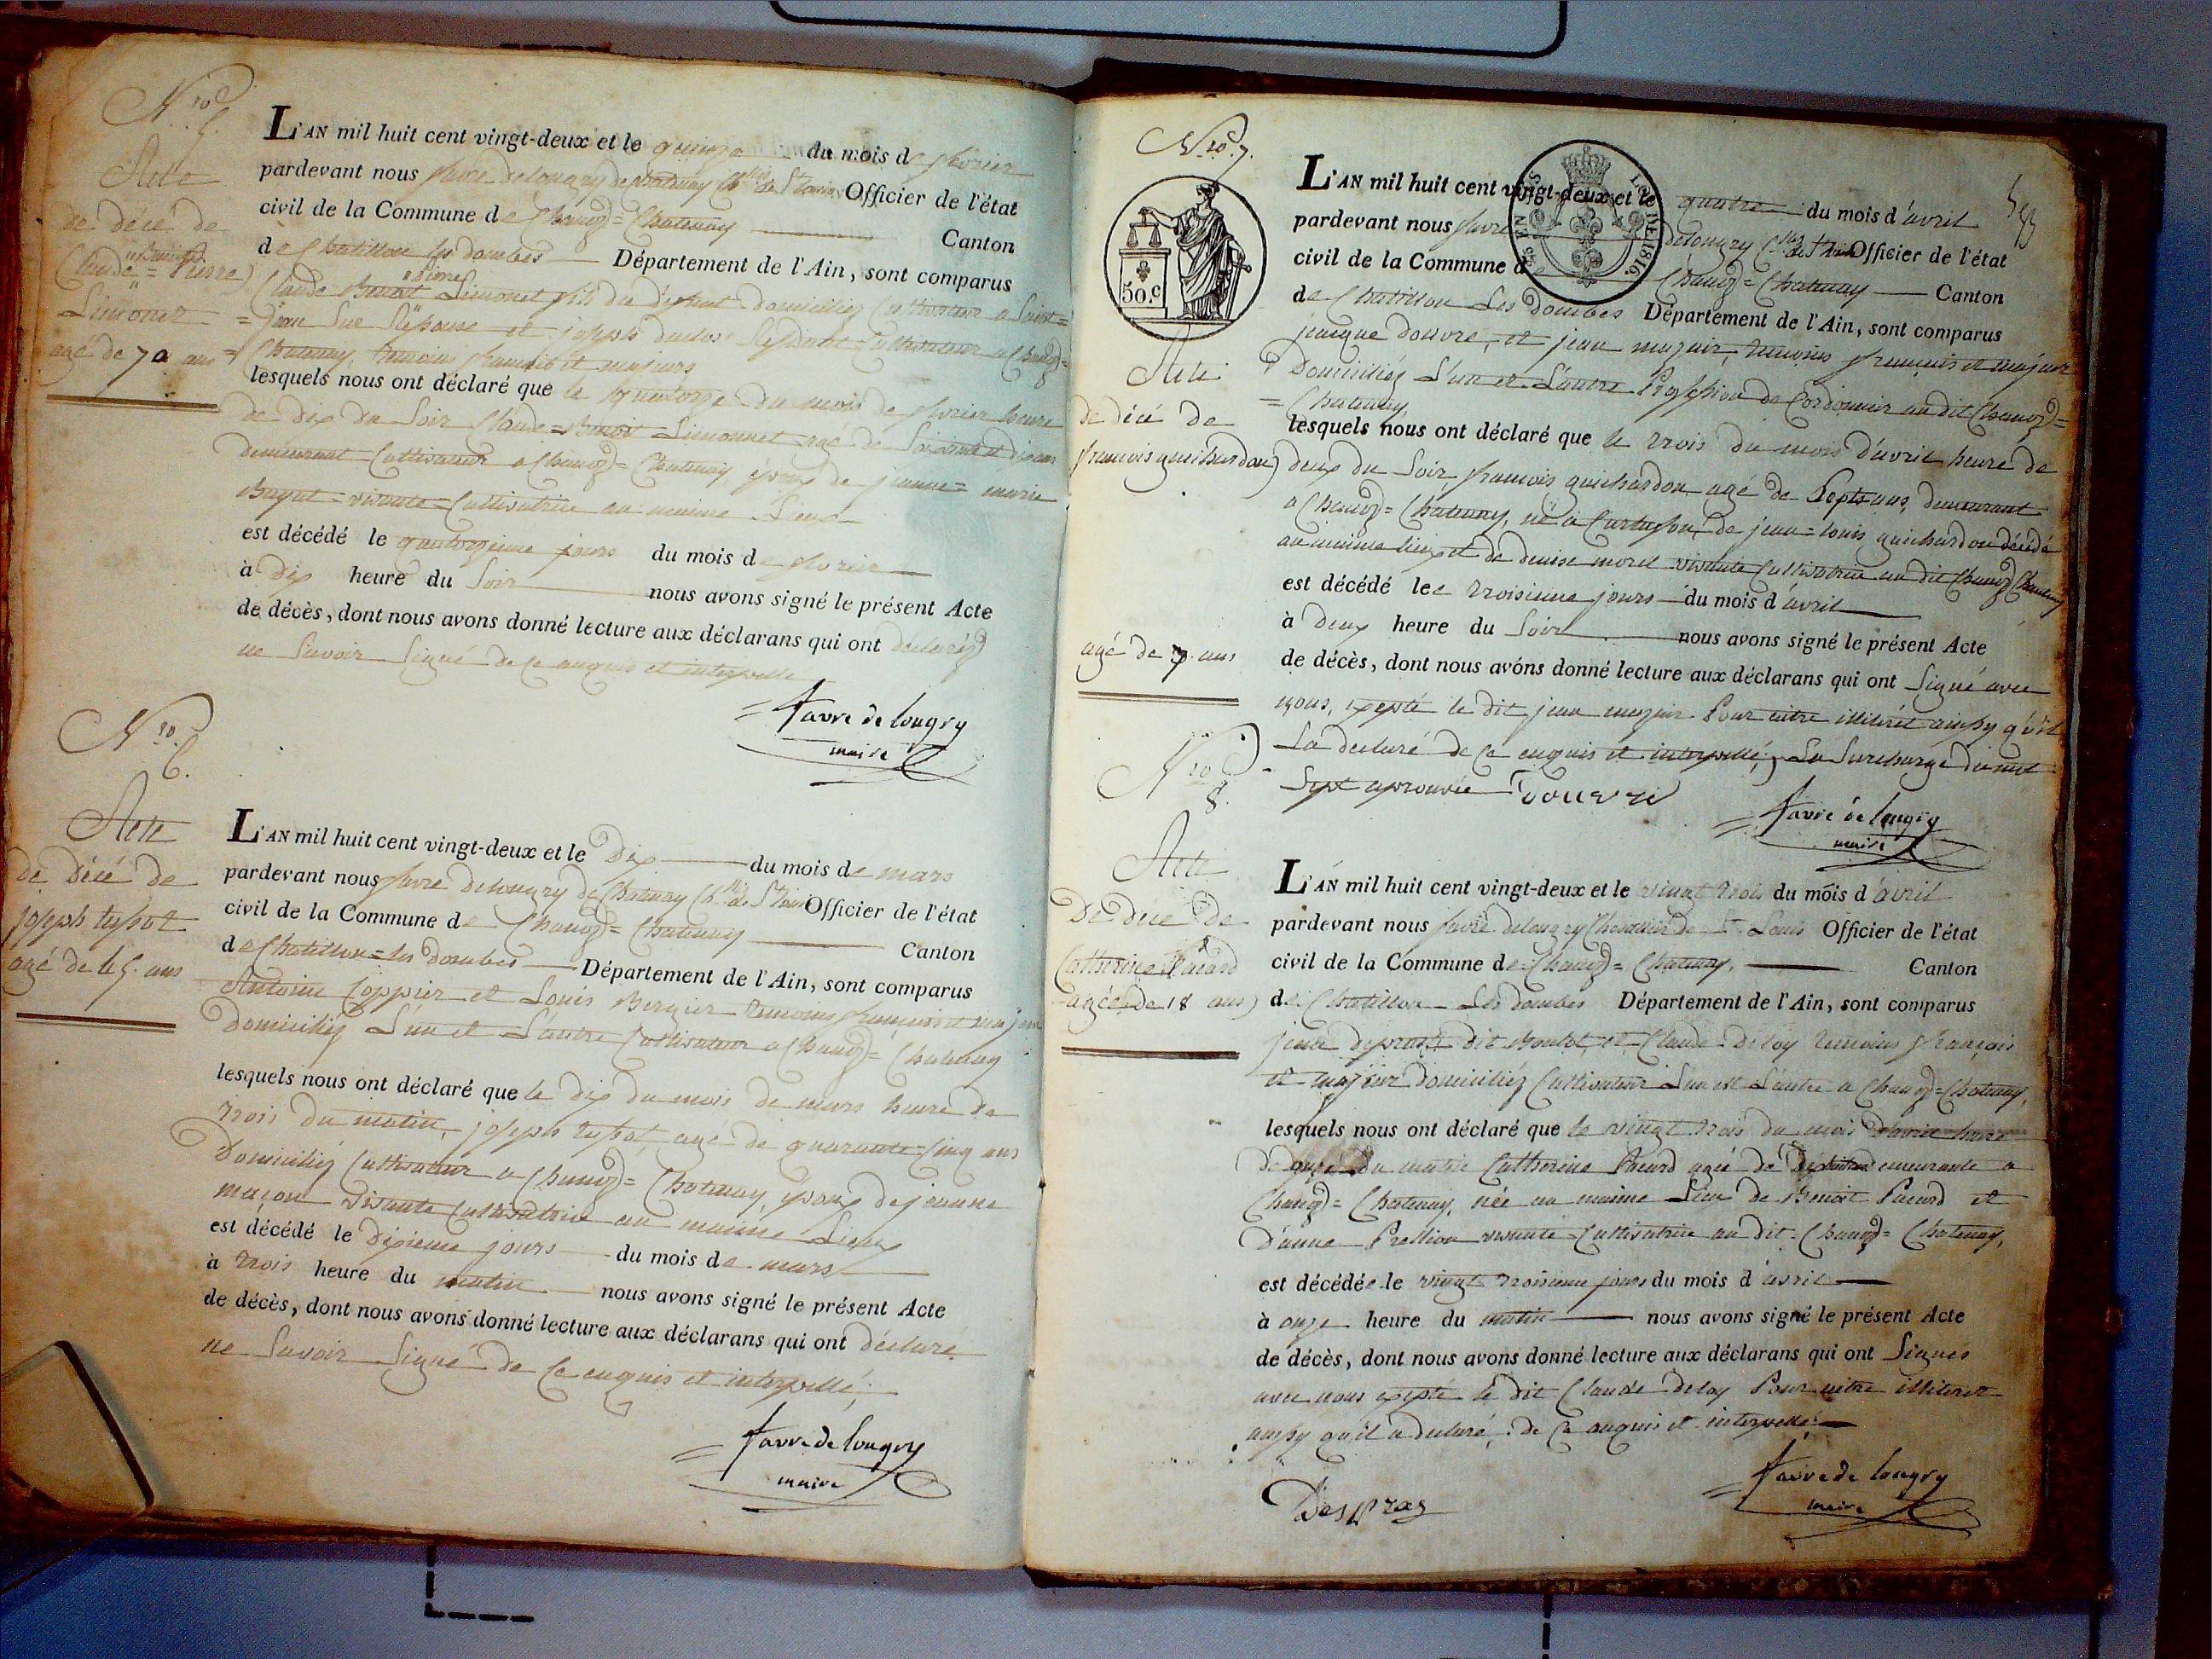 Nro 5.
Acte
de décé de
Claude = Pierre
Limonet
agé de 70 ans
L'AN mil huit cent vingt-deux et le quinze du mois de février
pardevant nous favre delongry de Chatenay Cher de St Louis Officier de l'état
civil de la Commune de Chanoz = Chatenay Canton
de Chatillon les dombes Département de l'Ain, sont comparus
Claude Limonet fils du défunt domiciliez Cultivateur a Saint =
= jean Sur Reÿssouse et joseph duclos Cultivateur a Chanoz =
= Chatenay temoins français et majeurs
lesquels nous ont déclaré que le quatorze du mois de février heure
de dix du Soir Claude = = Limonnet agé de Soixante et dix ans
demeurant Cultivateur a Chanoz = Chatenay époux de jeanne = marie
Buyat = vivante = Cultivatrice au maime Lieux
est décédé le quatorzieme jours du mois de fevrier
à dix heure du Soir nous avons signé le présent Acte
de décès, dont nous avons donné lecture aux déclarans qui ont declaréz
ne Savoir Signé de Ce anquis et interpellé
favre de longry
maire
Nro 6.
Acte
de décé de
joseph tissot
agé de 45. ans
L'AN mil huit cent vingt-deux et le Dix du mois de mars
pardevant nous favre delongry de Chatenay Cher de St Louis Officier de l'état
civil de la Commune de Chanoz = Chatenay Canton
de Chatillon = les Dombes Département de l'Ain, sont comparus
Antoine Coppier et Louis Bergier temoins français et majeur
Domiciliez L'un et L'autre Cultivateur a Chanoz = Chatenay
lesquels nous ont déclaré que le dix du mois de mars heure de
trois du matin, joseph tissot, agé de quarante = Cinq ans
Domiciliez Cultivateur a Chanoz = Chatenay, époux de jeanne
maçon vivante Cultivatrice au maime Lieux
est décédé le dixieme jours du mois de mars
à trois heure du matin nous avons signé le présent Acte
de décès, dont nous avons donné lecture aux déclarans qui ont déclaré
ne Savoir Signé de Ce enquis et interpellé;
favre de longry
maire
Nro 7.
50.c
Acte
de décé de
francois guichardon
agé de 7 ans
L'AN mil huit cent vingt-deux et le quatre du mois d'avril
pardevant nous favre delongry Cher de St Louis Officier de l'état
civil de la Commune de Chanoz = Chatenay Canton
de Chatillon Les dombes Département de l'Ain, sont comparus
jacque douvre, et jean mazuir, temoins français et majeur
Domiciliéz L'un et L'autre Proffession de Cordonnier au dit Chanoz =
= Chatenay
lesquels nous ont déclaré que le trois du mois d'avril heure de
deux du Soir, francois guichardon agé de Septs ans, demeurant
a Chanoz = Chatenay, né a de jean = louis guichardon décédé
au maime lieux et de denise morel vivante Cultivatrice au dit Chanoz Chatenay
est décédé le troisieme jours du mois d'avril
à deux heure du Soir nous avons signé le présent Acte
de décès, dont nous avons donné lecture aux déclarans qui ont Signé avec
nous, expté le dit jean mazuir Pour aitre illiteré ainssy qu'il
La declaré de Ce enquis et interpellé; La Surcharge du mot
Sept aprouvée Douvre
favre de longry
maire
Nro 8.
Acte
De déce de
Catherine Pacard
agée de 18 ans
L'AN mil huit cent vingt-deux et le vingt trois du mois d'avril
pardevant nous favre delongry Chevallier de St Louis Officier de l'état
civil de la Commune de Chanoz = Chatenay, Canton
de Chatillon Les dombes Département de l'Ain, sont comparus
jean dit et Claude Deloy temoins français
et majeur domiciliéz Cultivateur L'un et L'autre a Chanoz = Chatenay,
lesquels nous ont déclaré que le vingt trois du mois d'avril heure
de onze du matin Catherine Pacard agée de dixhuit ans demeurante a
Chanoz = Chatenay, née au maime Lieu de Benoit Pacard et
d'anne vivante = Cultivatrice au dit Chanoz = Chatenay,
est décédée le vingt troisieme jours du mois d'avril
à onze heure du matin nous avons signé le présent Acte
de décès, dont nous avons donné lecture aux déclarans qui ont Signés
avec nous expté le dit Claude Deloy Pour aitre illiteret
ainssy qu'il a declaré; de Ce anquis et interpellé
Despras
favre de longry
maire